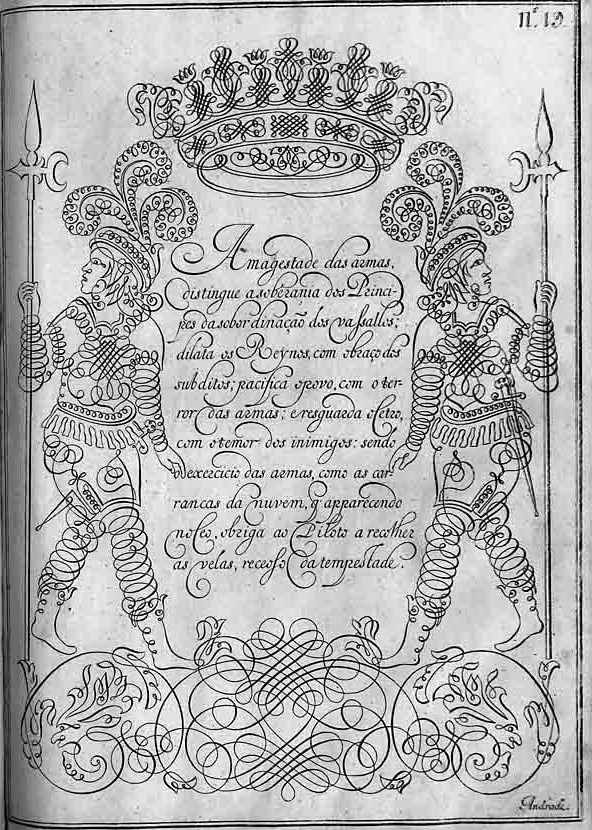 Nº. 19.
A magestade das armas,
distingue a soberania dos Princi-
pes da sobordinação dos vassallos;
dilata os Reynos, com obraço dos
subditos; pacifica opovo, com o ter-
ror das armas; e resguarda o cetro,
com otemor dos inimigos: sendo
oexercicio das armas, como as car-
rancas da nuvem, q̃ apparecendo
noCeo, obriga ao Piloto a recolher
as velas, receoso da tempestade.
Andrade.